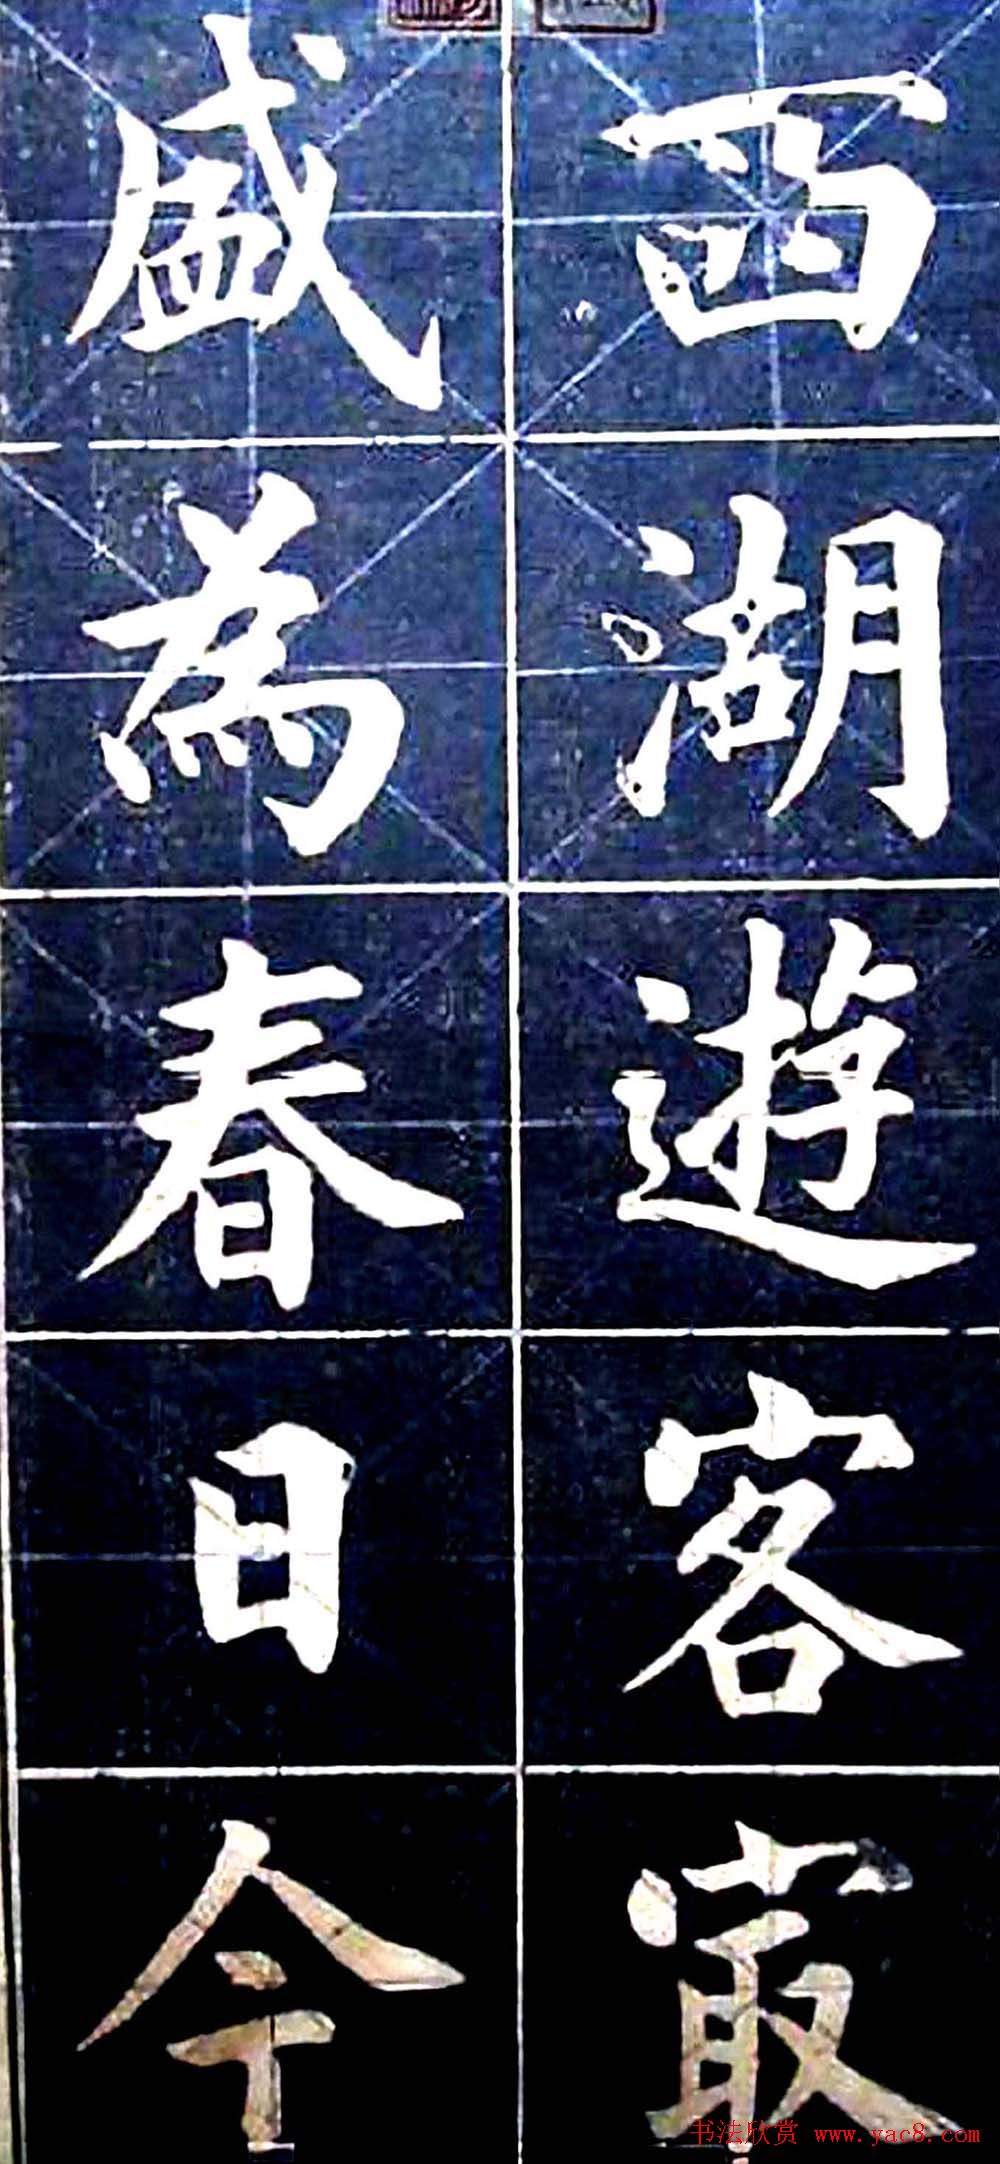 西湖遊客㝡
盛為春日今
书法欣赏 www.yac8.com